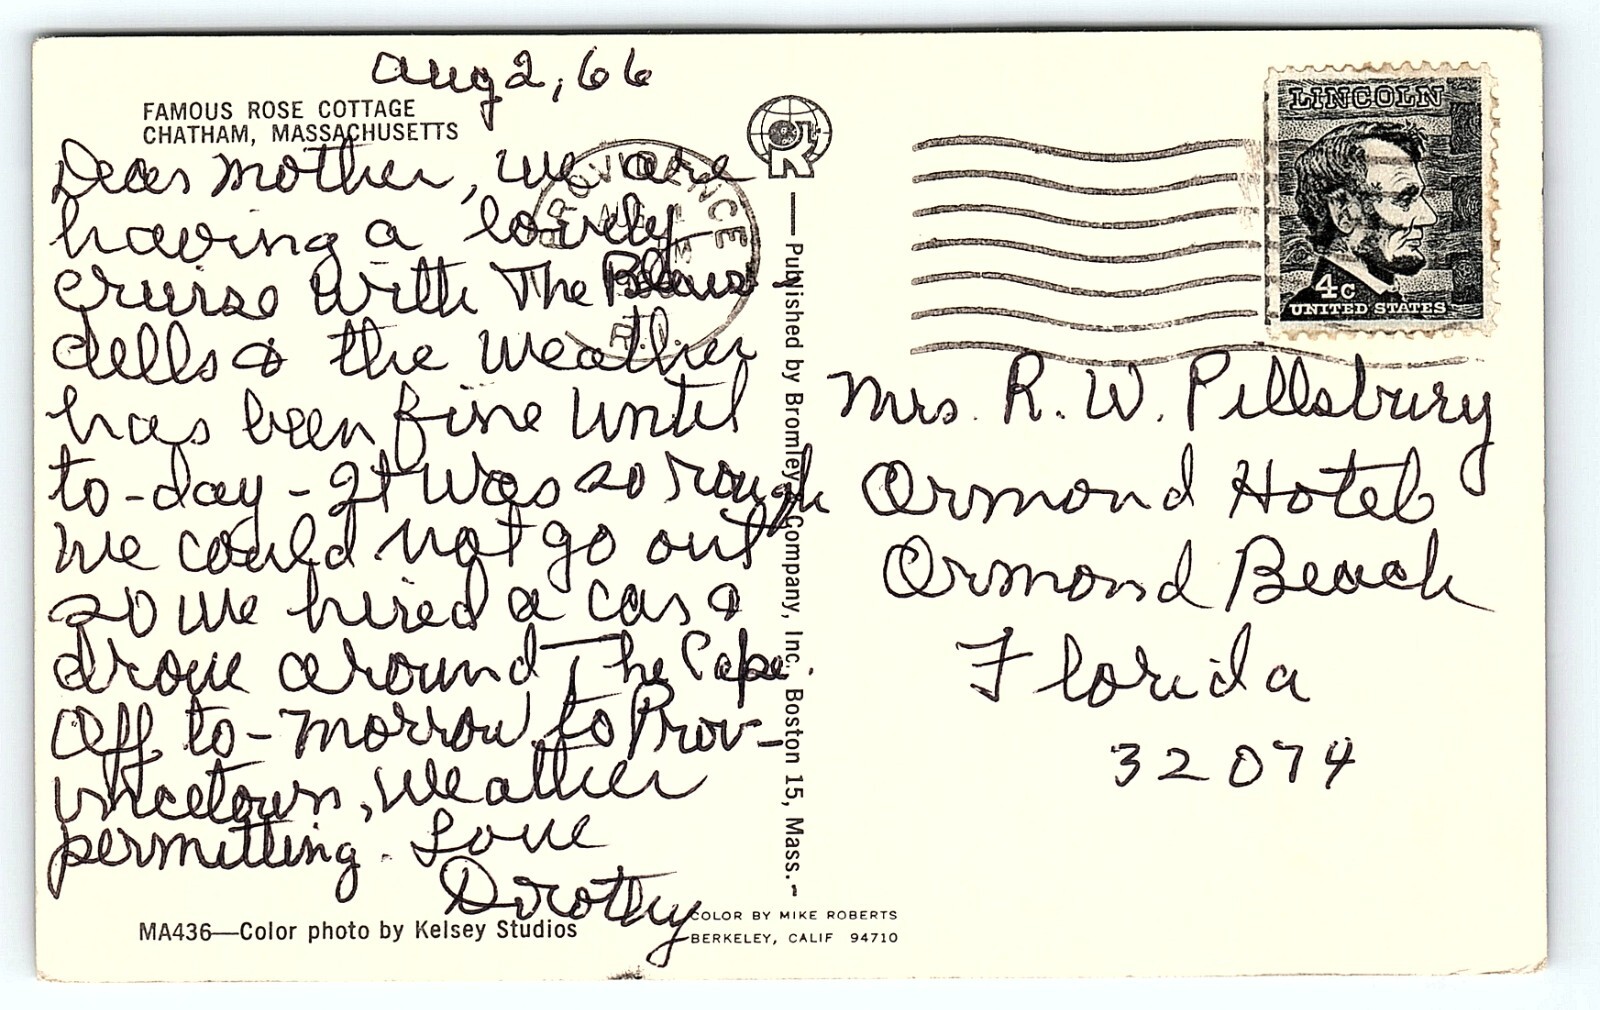 Aug 2, 66
FAMOUS ROSE COTTAGE
CHATHAM, MASSACHUSETTS
Dear Mother, we are
having a lovely
cruise with The Blais
dells & the weather
has been fine until
to-day - It was so rough
we could not go out
so we hired a car &
drove around The Cape.
Off to-morrow to Prov-
incetown, weather
permitting. Love
Dorothy
MA436—Color photo by Kelsey Studios
PROVINCE
R.I.
R
— Published by Bromley & Company, Inc., Boston 15, Mass. —
COLOR BY MIKE ROBERTS
BERKELEY, CALIF 94710
LINCOLN
4c
UNITED STATES
Mrs. R. W. Pillsbury
Ormond Hotel
Ormond Beach
Florida
32074